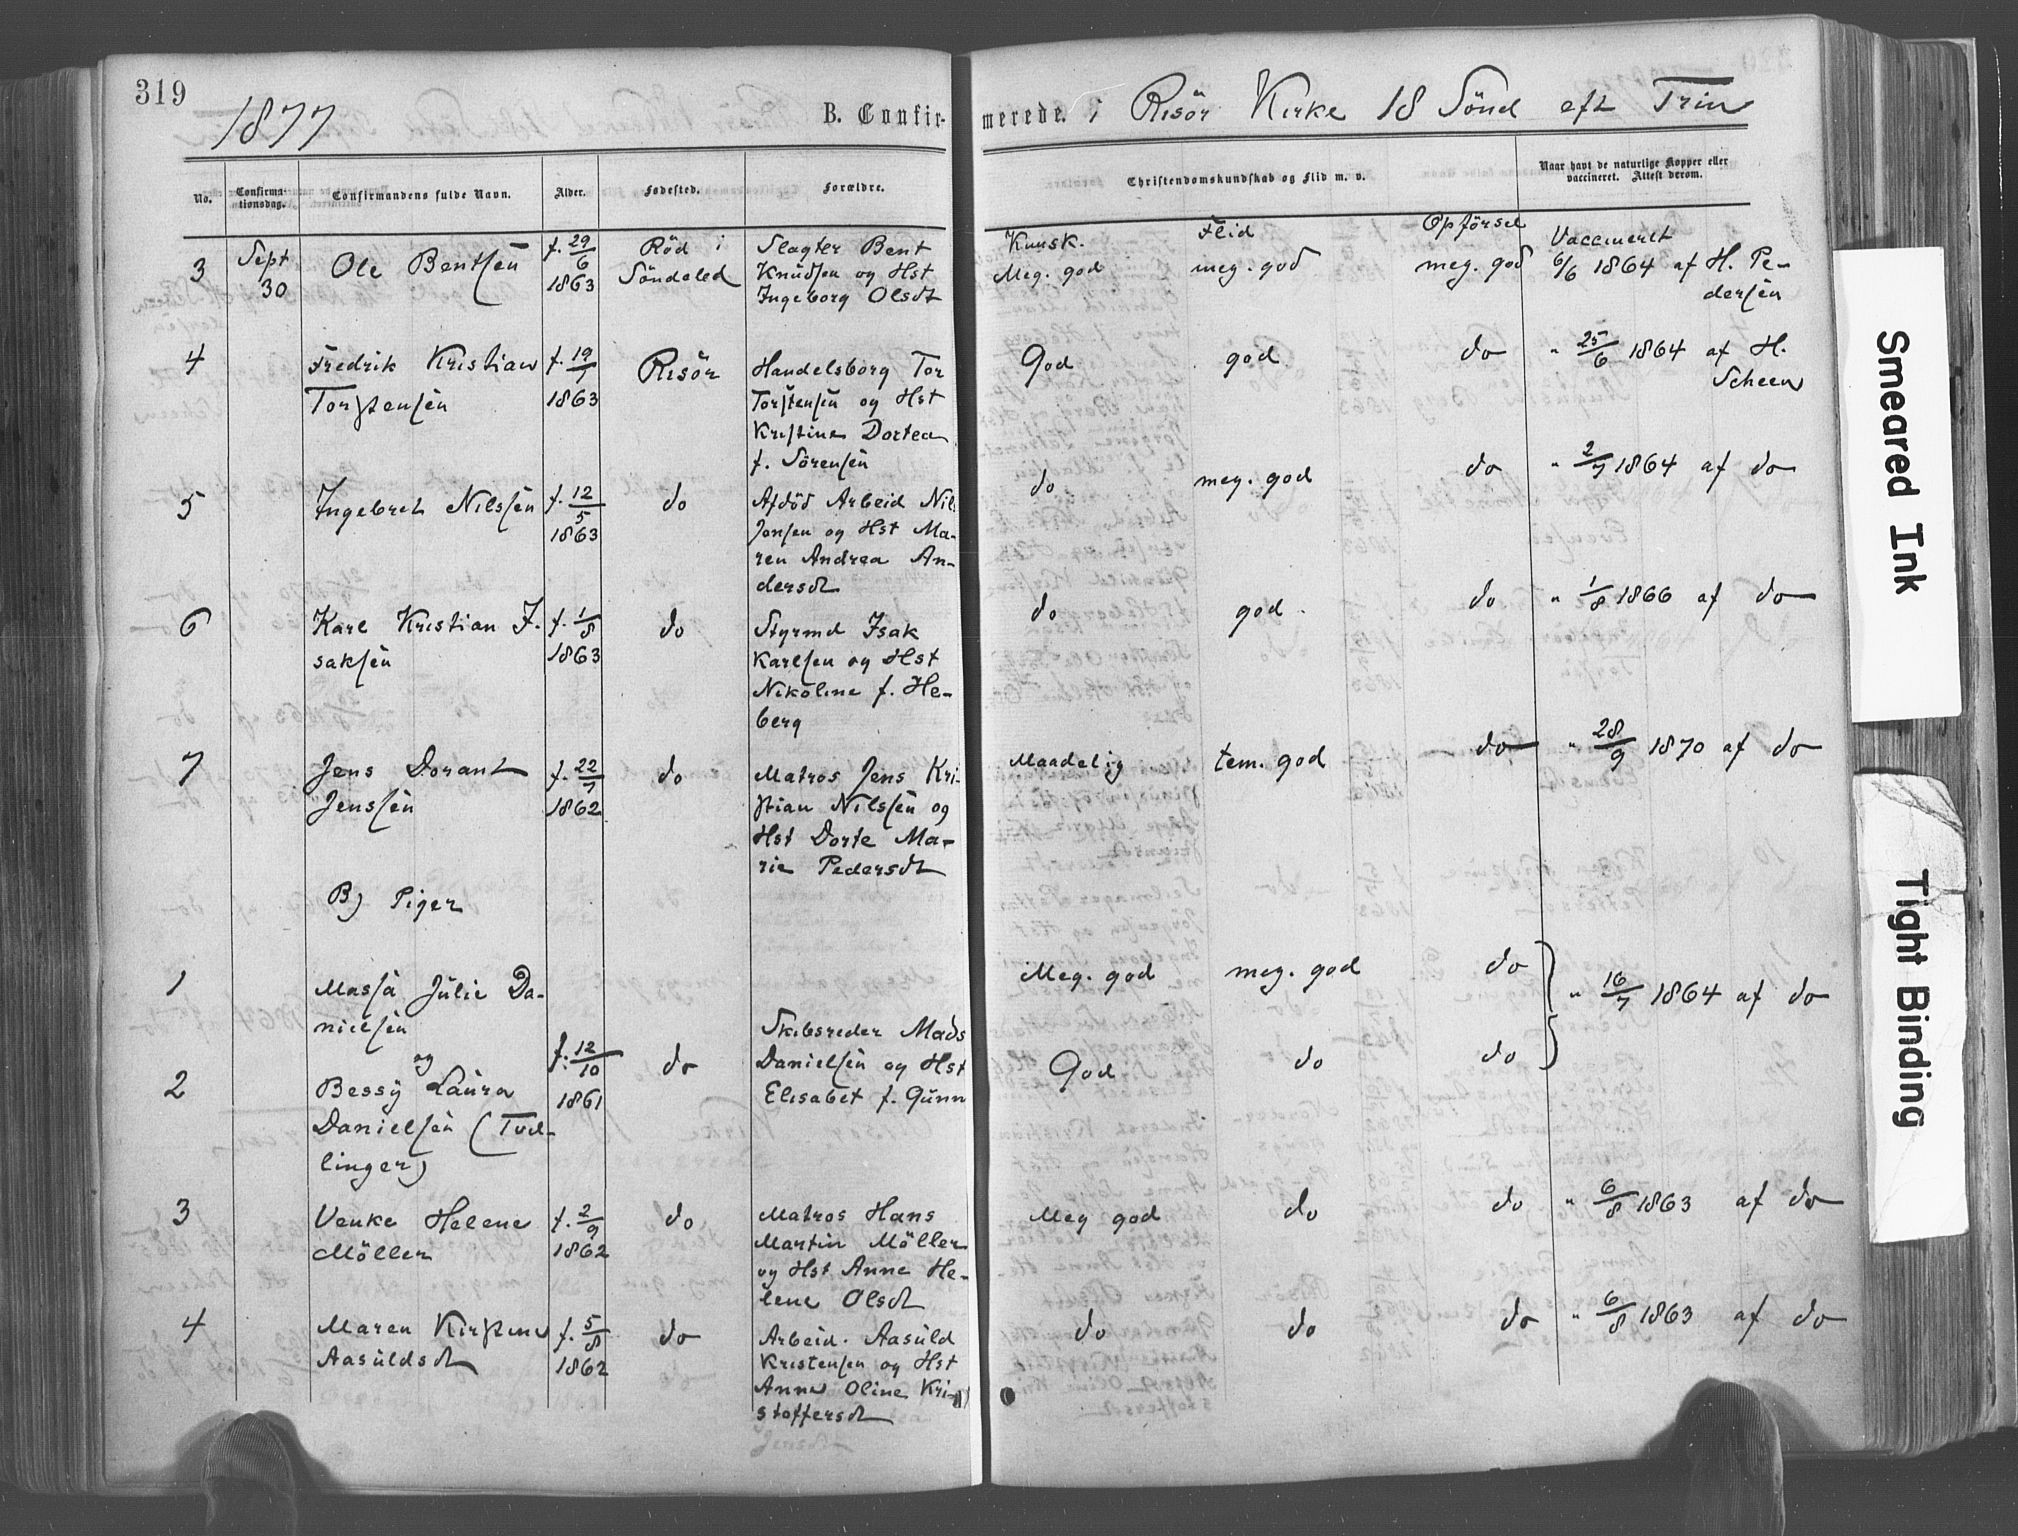 319
1877 B. Confirmerede. i Risör Kirke 18 Sönd eft Trin
No. Confirmationsdag. Confirmandens fulde Navn. Alder. Fødested. Forældre. Christendomskundskab og Flid m. v. Naar havt de naturlige Kopper eller vaccineret. Attest derom.
Kunsk. Flid Opförsel Vaccineret
3 Sept Ole Bentsen f. 29/6 Röd i Slagter Bent Meg. god meg. god meg. god 6/6 1864 af H. Pe-
30 1863 Söndeled Knudsen og Hst dersen
Ingeborg Olsdt
4 Fredrik Kristian f. 19/7 Risör Handelsborg Tor God god do " 25/6 1864 af H.
Torstensen 1863 Torstensen og Hst Scheen
Kristine Dortea
f. Sörensen
5 Ingebret Nilssen f. 12/5 do Afdöd Arbeid Nils do meg. god do " 2/7 1864 af do
1863 Jensen og Hst Ma-
ren Andrea An-
dersdt
6 Karl Kristian I- f. 1/8 do Styrmd Isak do god do " 1/8 1866 af do
saksen 1863 Karlsen og Hst
Nikoline f. He-
berg
7 Jens Dorant f. 22/7 do Matros Jens Kri- Maadelig tem. god do " 28/9 1870 af do
Jenssen 1862 stian Nilssen og
Hst Dorte Ma-
rie Pedersdt
B) Piger
1 Massa Julie Da- Meg. god meg. god do " 16/7 1864 af do
nielsen Skibsreder Mads
og f. 12/10 do Danielsen og Hst God do do
2 Bessy Laura 1861 Elisabet f. Gunn
Danielsen (Tvil-
linger)
3 Venke Helene f. 2/9 do Matros Hans Meg god do do " 6/8 1863 af do
Möller 1862 Martin Möller
og Hst Anne He-
lene Olsdt
4 Maren Kirstine f. 5/8 do Arbeid. Aasuld do do do " 6/8 1863 af do
Aasuldsdt 1862 Kristensen og Hst
Anne Oline Kri-
stoffersdt
Smeared Ink
Tight Binding